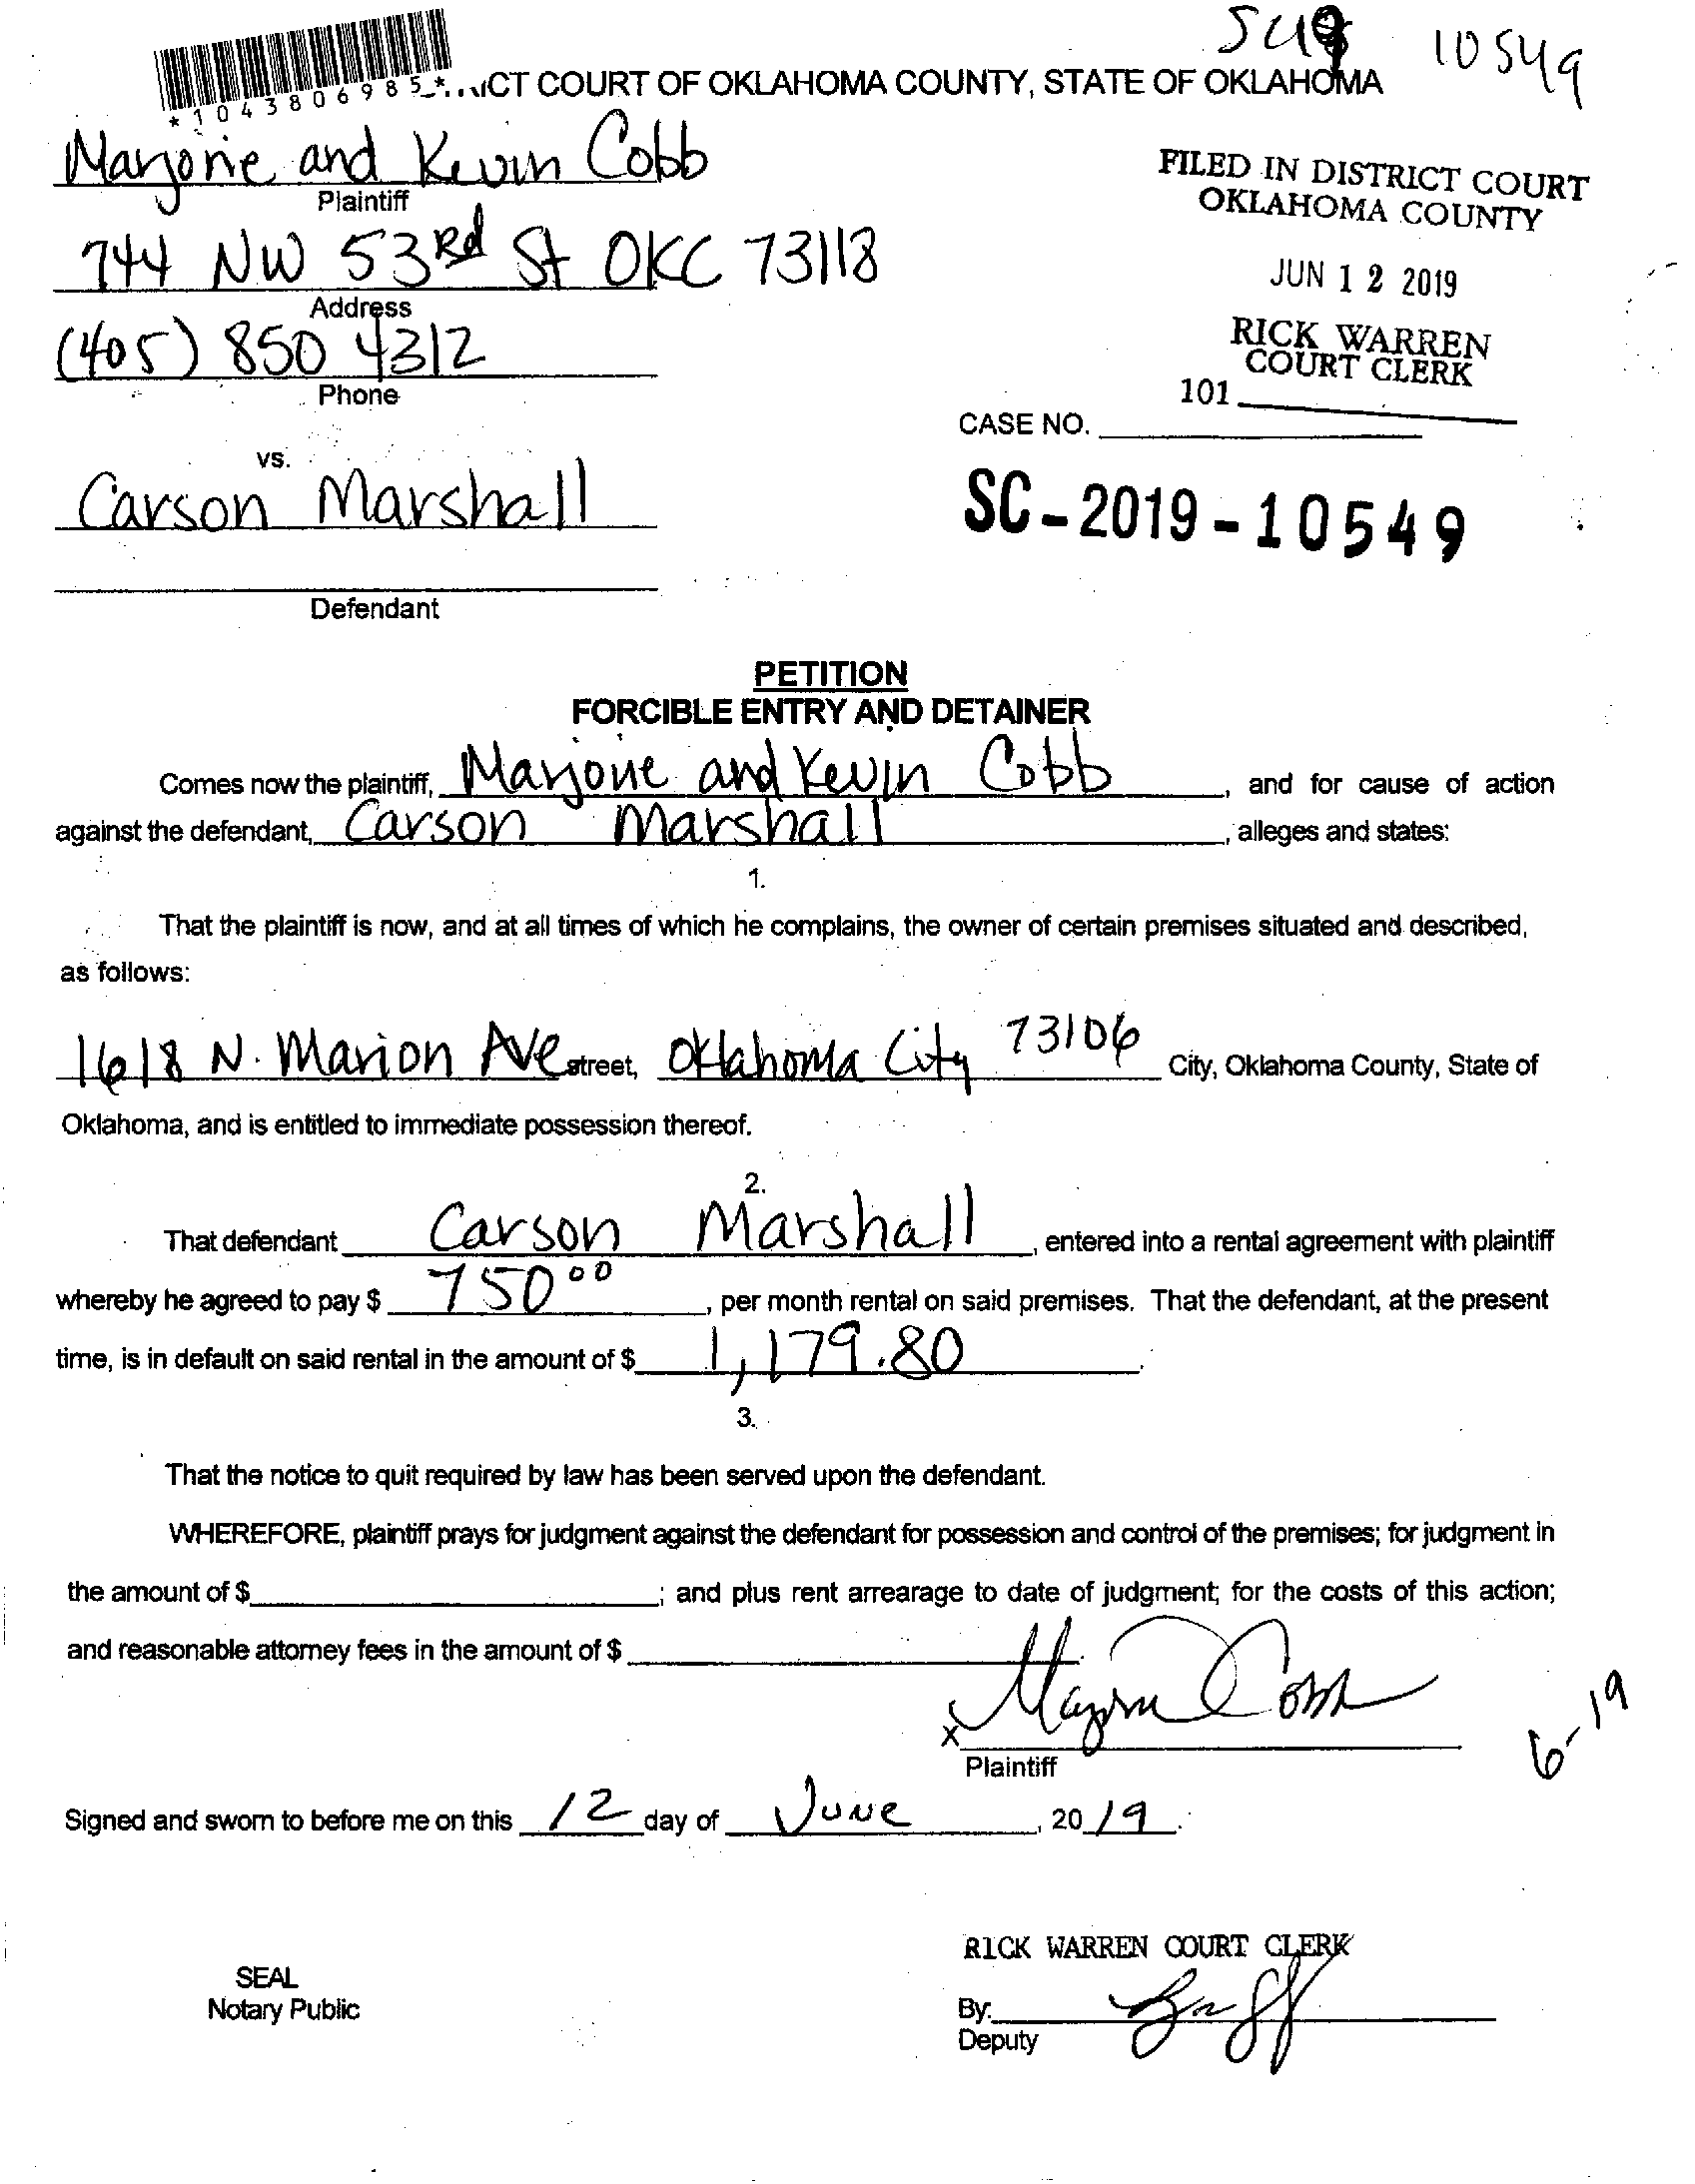 SC19 10549
*1043806985*
ICT COURT OF OKLAHOMA COUNTY, STATE OF OKLAHOMA
Marjorie and Kevin Cobb
Plaintiff
744 NW 53Rd St OKC 73118
Address
(405) 850 4312
Phone
vs.
Carson Marshall
Defendant
FILED IN DISTRICT COURT
OKLAHOMA COUNTY
JUN 12 2019
RICK WARREN
COURT CLERK
101
CASE NO.
SC-2019-10549
PETITION
FORCIBLE ENTRY AND DETAINER
Comes now the plaintiff, Marjorie and Kevin Cobb, and for cause of action
against the defendant, Carson Marshall, alleges and states:
1.
That the plaintiff is now, and at all times of which he complains, the owner of certain premises situated and described,
as follows:
1618 N. Marion Ave street, Oklahoma City 73106 City, Oklahoma County, State of
Oklahoma, and is entitled to immediate possession thereof.
2.
That defendant Carson Marshall, entered into a rental agreement with plaintiff
whereby he agreed to pay $ 750 00, per month rental on said premises. That the defendant, at the present
time, is in default on said rental in the amount of $ 1,179.80.
3.
That the notice to quit required by law has been served upon the defendant.
WHEREFORE, plaintiff prays for judgment against the defendant for possession and control of the premises; for judgment in
the amount of $ ; and plus rent arrearage to date of judgment; for the costs of this action;
and reasonable attorney fees in the amount of $ .
x Marjorie Cobb
Plaintiff
6-19
Signed and sworn to before me on this 12 day of June, 2019.
SEAL
Notary Public
RICK WARREN COURT CLERK
By:
Deputy